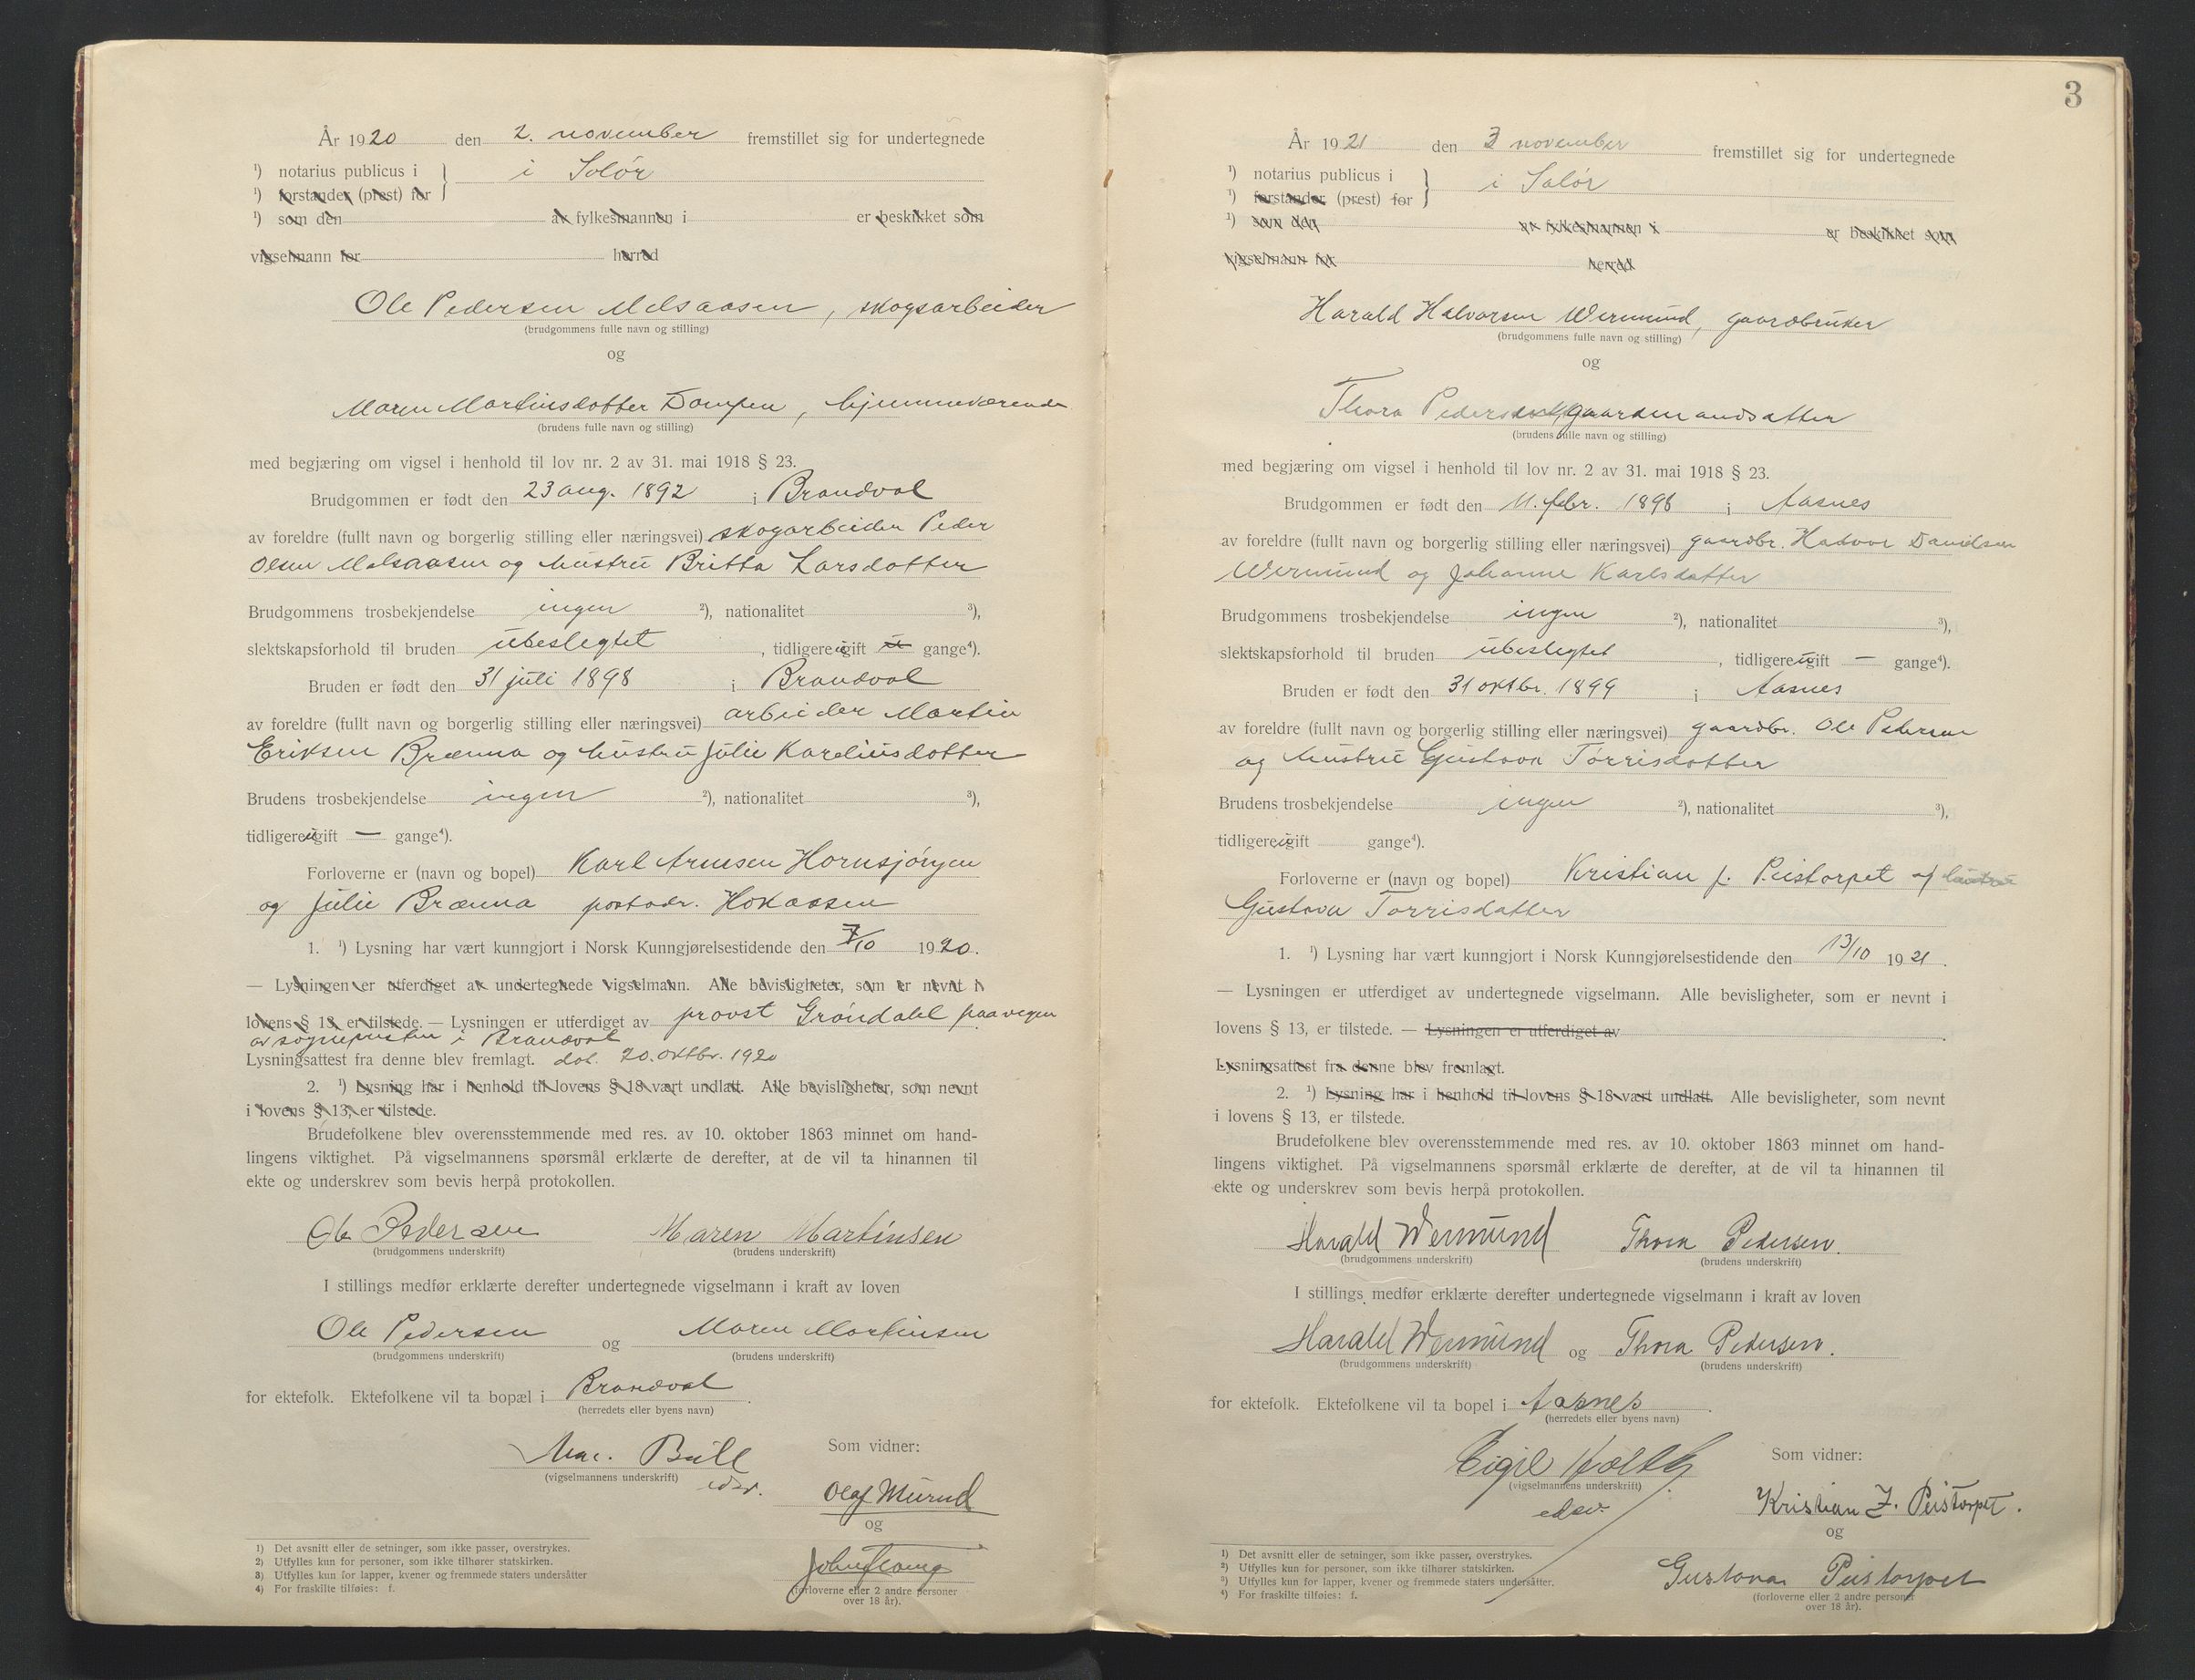 År 1920 den 2. november fremstillet sig for undertegnede
¹) notarius publicus i } i Solør
¹) forstander (prest) for
¹) som den av fylkesmannen i er beskikket som
vigselmann for herred
Ole Pedersen Melsaasen, skogsarbeider
(brudgommens fulle navn og stilling)
og
Maren Martinsdotter Dampen, hjemmeværende
(brudens fulle navn og stilling)
med begjæring om vigsel i henhold til lov nr. 2 av 31. mai 1918 § 23.
Brudgommen er født den 23 aug. 1892 i Brandval
av foreldre (fullt navn og borgerlig stilling eller næringsvei) skogarbeider Peder
Olsen Melsaasen og hustru Britta Larsdotter
Brudgommens trosbekjendelse ingen ²), nationalitet ³),
slektskapsforhold til bruden ubeslegtet, tidligere ugift u gange⁴).
Bruden er født den 31 juli 1898 i Brandval
av foreldre (fullt navn og borgerlig stilling eller næringsvei) arbeider Martin
Eriksen Brænna og hustru Julie Kareliusdotter
Brudens trosbekjendelse ingen ²), nationalitet ³),
tidligere ugift — gange⁴).
Forloverne er (navn og bopel) Karl Arnesen Hornsjøryen
og Julie Brænna postadr. Hokaasen
1. ¹) Lysning har vært kunngjort i Norsk Kunngjørelsestidende den 7/10 1920.
— Lysningen er utferdiget av undertegnede vigselmann. Alle bevisligheter, som er nevnt i
lovens § 13, er tilstede. — Lysningen er utferdiget av provst Grøndahl paa vegen
av sogneprsten i Brandval
Lysningsattest fra denne blev fremlagt. dat. 20. oktbr. 1920
2. ¹) Lysning har i henhold til lovens § 18 vært undlatt. Alle bevisligheter, som nevnt
i lovens § 13, er tilstede.
Brudefolkene blev overensstemmende med res. av 10. oktober 1863 minnet om hand-
lingens viktighet. På vigselmannens spørsmål erklærte de derefter, at de vil ta hinannen til
ekte og underskrev som bevis herpå protokollen.
Ole Pedersen Maren Martinsen
(brudgommens underskrift) (brudens underskrift)
I stillings medfør erklærte derefter undertegnede vigselmann i kraft av loven
Ole Pedersen og Maren Martinsen
(brudgommens underskrift) (brudens underskrift)
for ektefolk. Ektefolkene vil ta bopæl i Brandval.
(herredets eller byens navn)
Bull Som vidner:
(vigselmannens underskrift)
Olaf Murud
og
(forloverne eller 2 andre personer
over 18 år).
1) Det avsnitt eller de setninger, som ikke passer, overstrykes.
2) Utfylles kun for personer, som ikke tilhører statskirken.
3) Utfylles kun for lapper, kvener og fremmede staters undersåtter
4) For fraskilte tilføies: f.
3
År 1921 den 3 november fremstillet sig for undertegnede
¹) notarius publicus i } i Solør
¹) forstander (prest) for
¹) som den av fylkesmannen i er beskikket som
vigselmann for herred
Harald Halvorsen Wermund, gaardbruker
(brudgommens fulle navn og stilling)
og
Thora Pedersen, gaardmandsatter
(brudens fulle navn og stilling)
med begjæring om vigsel i henhold til lov nr. 2 av 31. mai 1918 § 23.
Brudgommen er født den 11. febr. 1898 i Aasnes
av foreldre (fullt navn og borgerlig stilling eller næringsvei) gaardbr. Halvor Davidsen
Wermund og Johanne Karlsdatter
Brudgommens trosbekjendelse ingen ²), nationalitet ³),
slektskapsforhold til bruden ubeslegtet, tidligere ugift — gange⁴).
Bruden er født den 31 oktbr. 1899 i Aasnes
av foreldre (fullt navn og borgerlig stilling eller næringsvei) gaardbr. Ole Pedersen
og hustru Gustava Torrisdotter
Brudens trosbekjendelse ingen ²), nationalitet ³),
tidligere ugift gange⁴).
Forloverne er (navn og bopel) Kristian J. Peistorpet og hustru
Gustava Torrisdatter
1. ¹) Lysning har vært kunngjort i Norsk Kunngjørelsestidende den 13/10 1921.
— Lysningen er utferdiget av undertegnede vigselmann. Alle bevisligheter, som er nevnt i
lovens § 13, er tilstede. — Lysningen er utferdiget av
Lysningsattest fra denne blev fremlagt.
2. ¹) Lysning har i henhold til lovens § 18 vært undlatt. Alle bevisligheter, som nevnt
i lovens § 13, er tilstede.
Brudefolkene blev overensstemmende med res. av 10. oktober 1863 minnet om hand-
lingens viktighet. På vigselmannens spørsmål erklærte de derefter, at de vil ta hinannen til
ekte og underskrev som bevis herpå protokollen.
Harald Wermund Thora Pedersen.
(brudgommens underskrift) (brudens underskrift)
I stillings medfør erklærte derefter undertegnede vigselmann i kraft av loven
Harald Wermund og Thora Pedersen.
(brudgommens underskrift) (brudens underskrift)
for ektefolk. Ektefolkene vil ta bopel i Aasnes.
(herredets eller byens navn)
Eigil Som vidner:
(vigselmannens underskrift)
edsv.
Kristian J. Peistorpet.
og
Gustava Peistorpet
(forloverne eller 2 andre personer
over 18 år).
¹) Det avsnitt eller de setninger, som ikke passer, overstrykes.
²) Utfylles kun for personer, som ikke tilhører statskirken.
³) Utfylles kun for lapper, kvener og fremmede staters undersåtter.
⁴) For fraskilte tilføies: f.